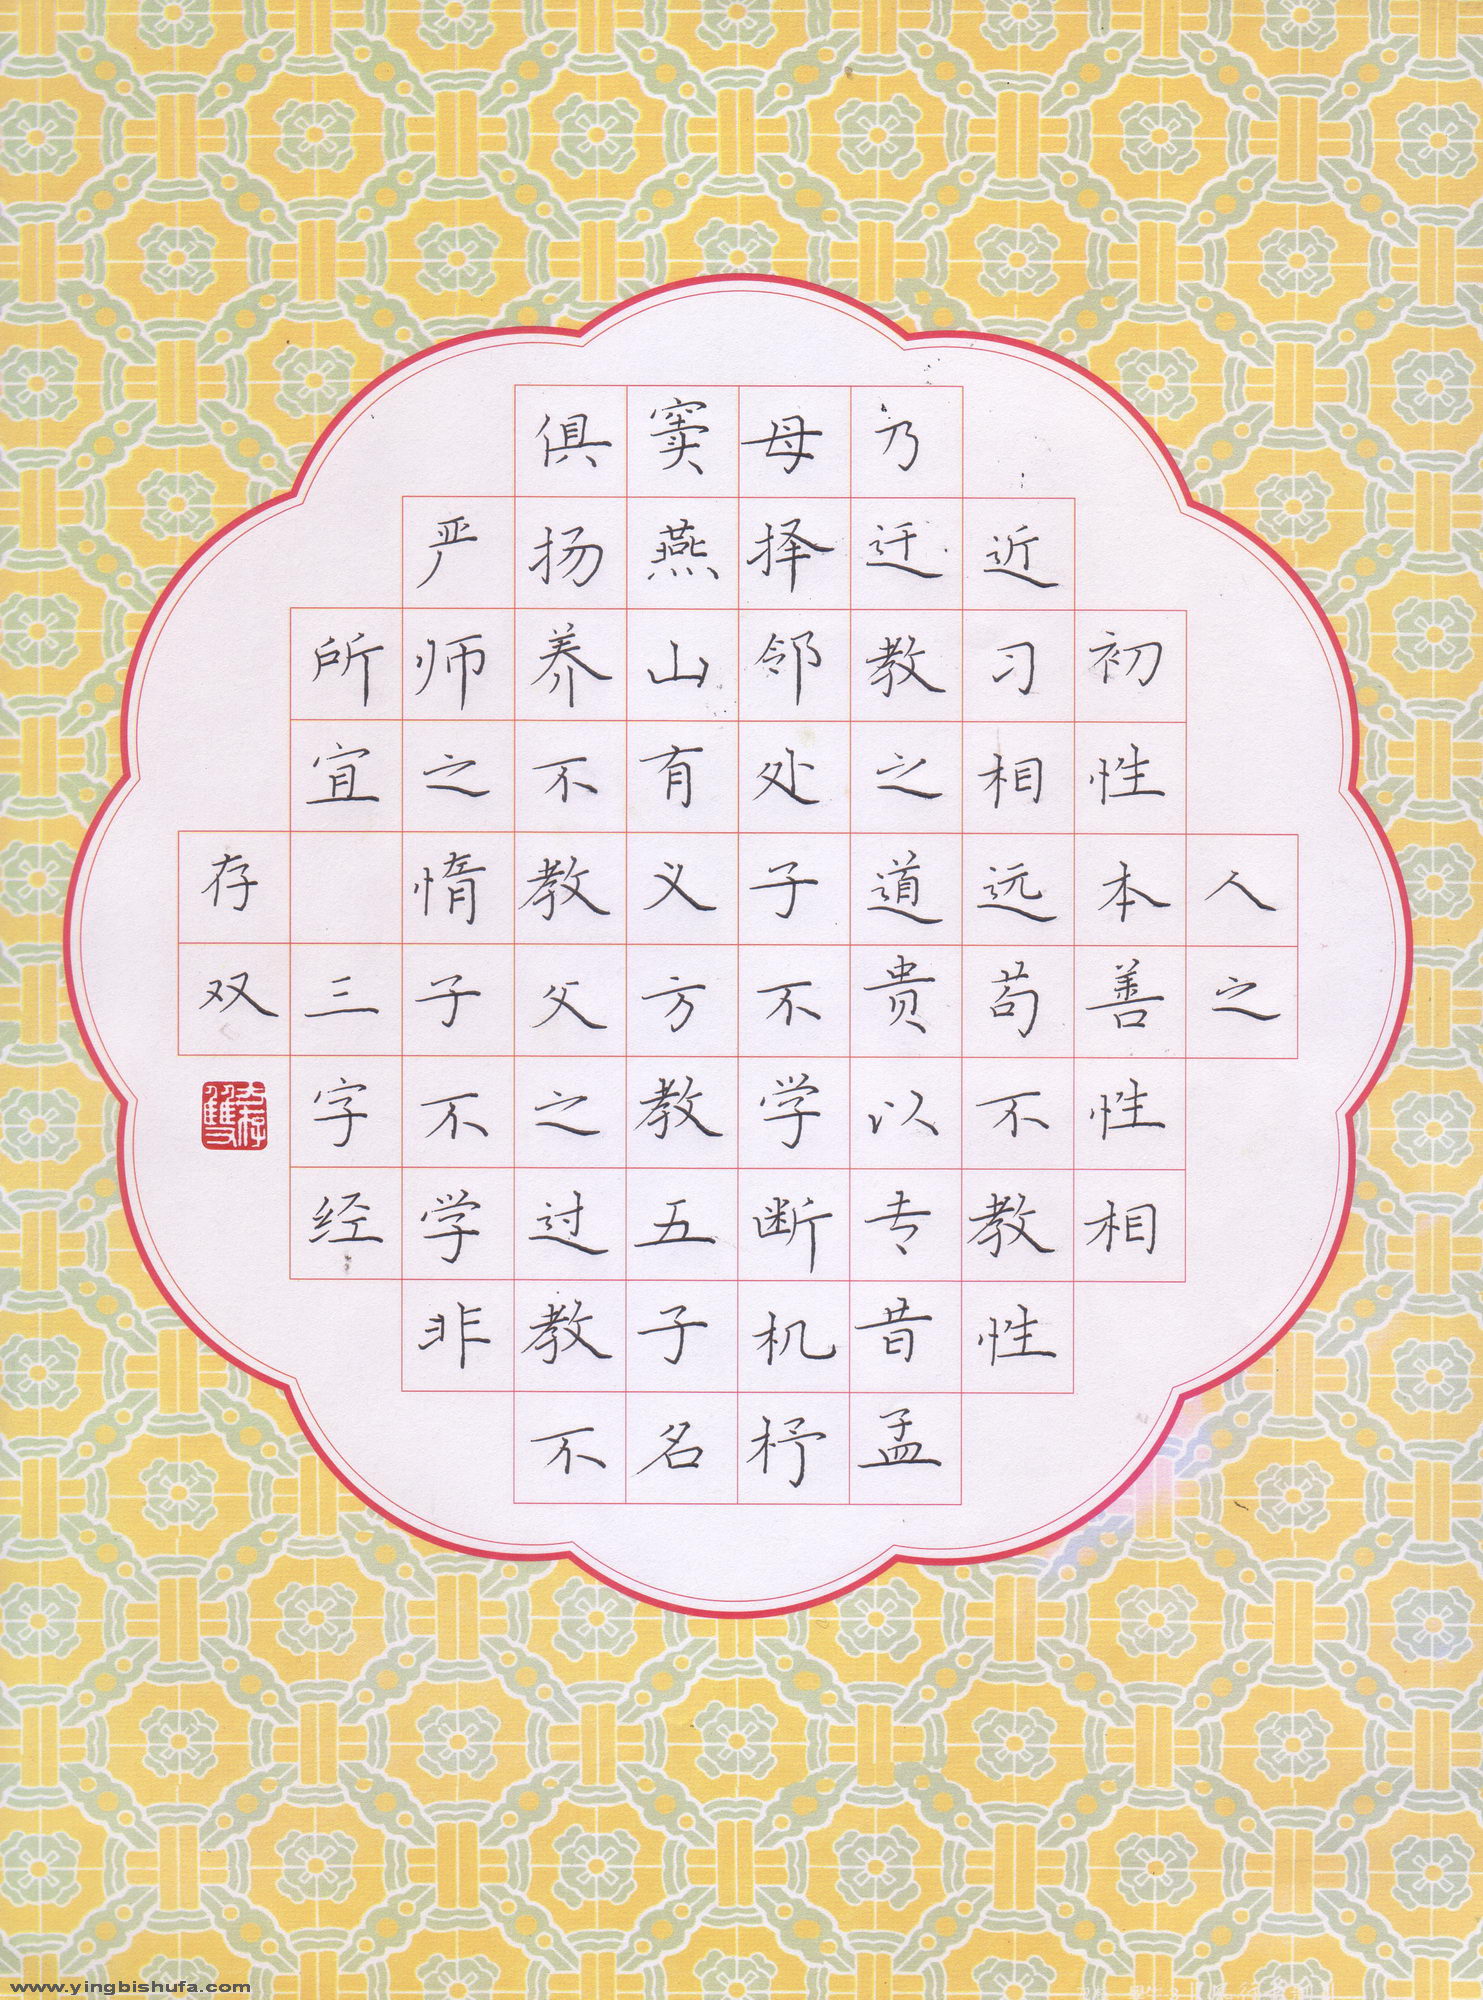 人之
初性本善性相
近习相远苟不教性
乃迁教之道贵以专昔孟
母择邻处子不学断机杼
窦燕山有义方教五子名
俱扬养不教父之过教不
严师之惰子不学非
所宜 三字经
存双
www.yingbishufa.com